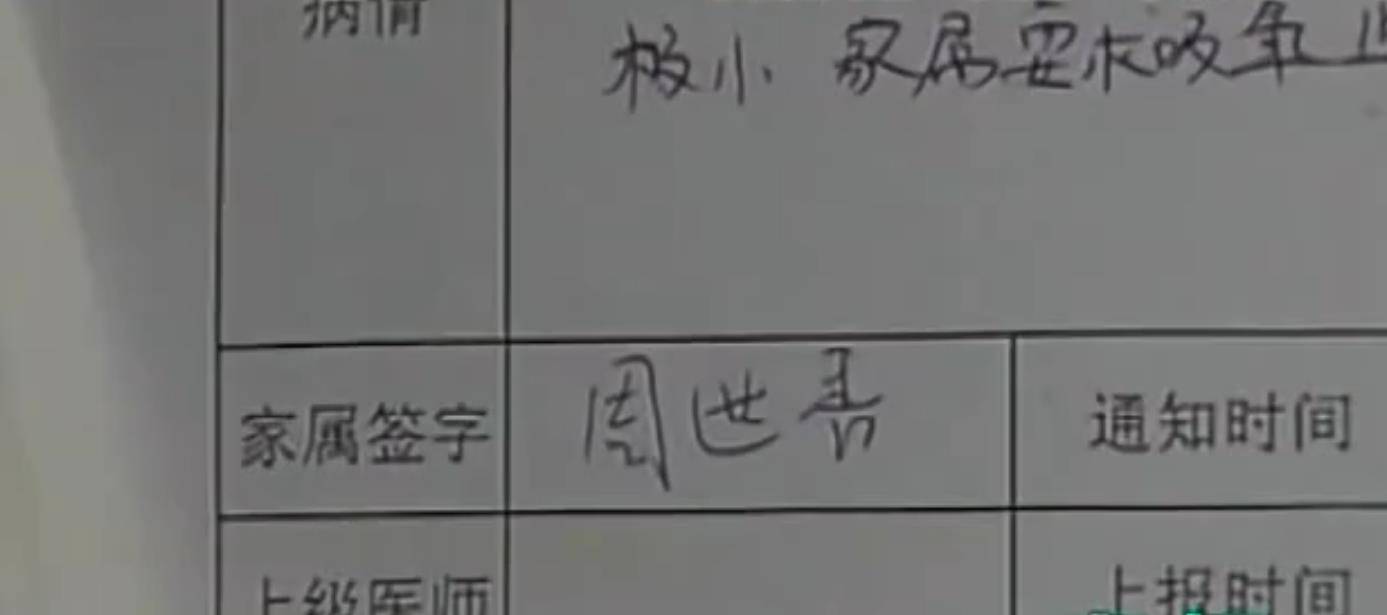 病情
极小 家属要求吸氧
家属签字 周世善 通知时间
上级医师 上报时间